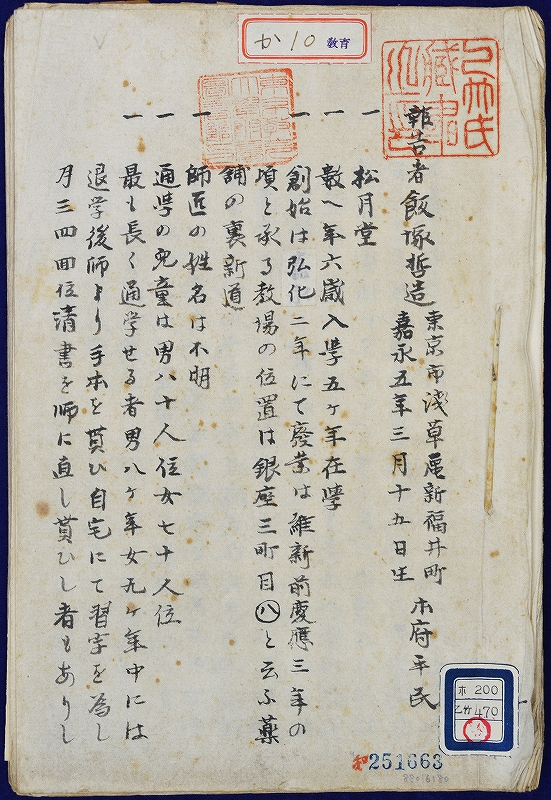 か10 教育
報告者 飯塚哲造
東京市浅草区新福井町 本府平民
嘉永五年三月十九日生
一 松月堂
一 数へ年六歳入学五ヶ年在学
一 創始は弘化二年にて廃業は維新前慶應三年の
頃と承る教場の位置は銀座三町目㊇と云ふ薬
舗の裏新道
一 師匠の姓名は不明
一 通学の児童は男八十人位女七十人位
一 最も長く通学せる者男八ヶ年女九ヶ年中には
退学後師より手本を貰ひ自宅にて習字を為し
月三四回位清書を師に直し貰ひし者もありし
ホ 200
乙竹 470
和251663
8806180